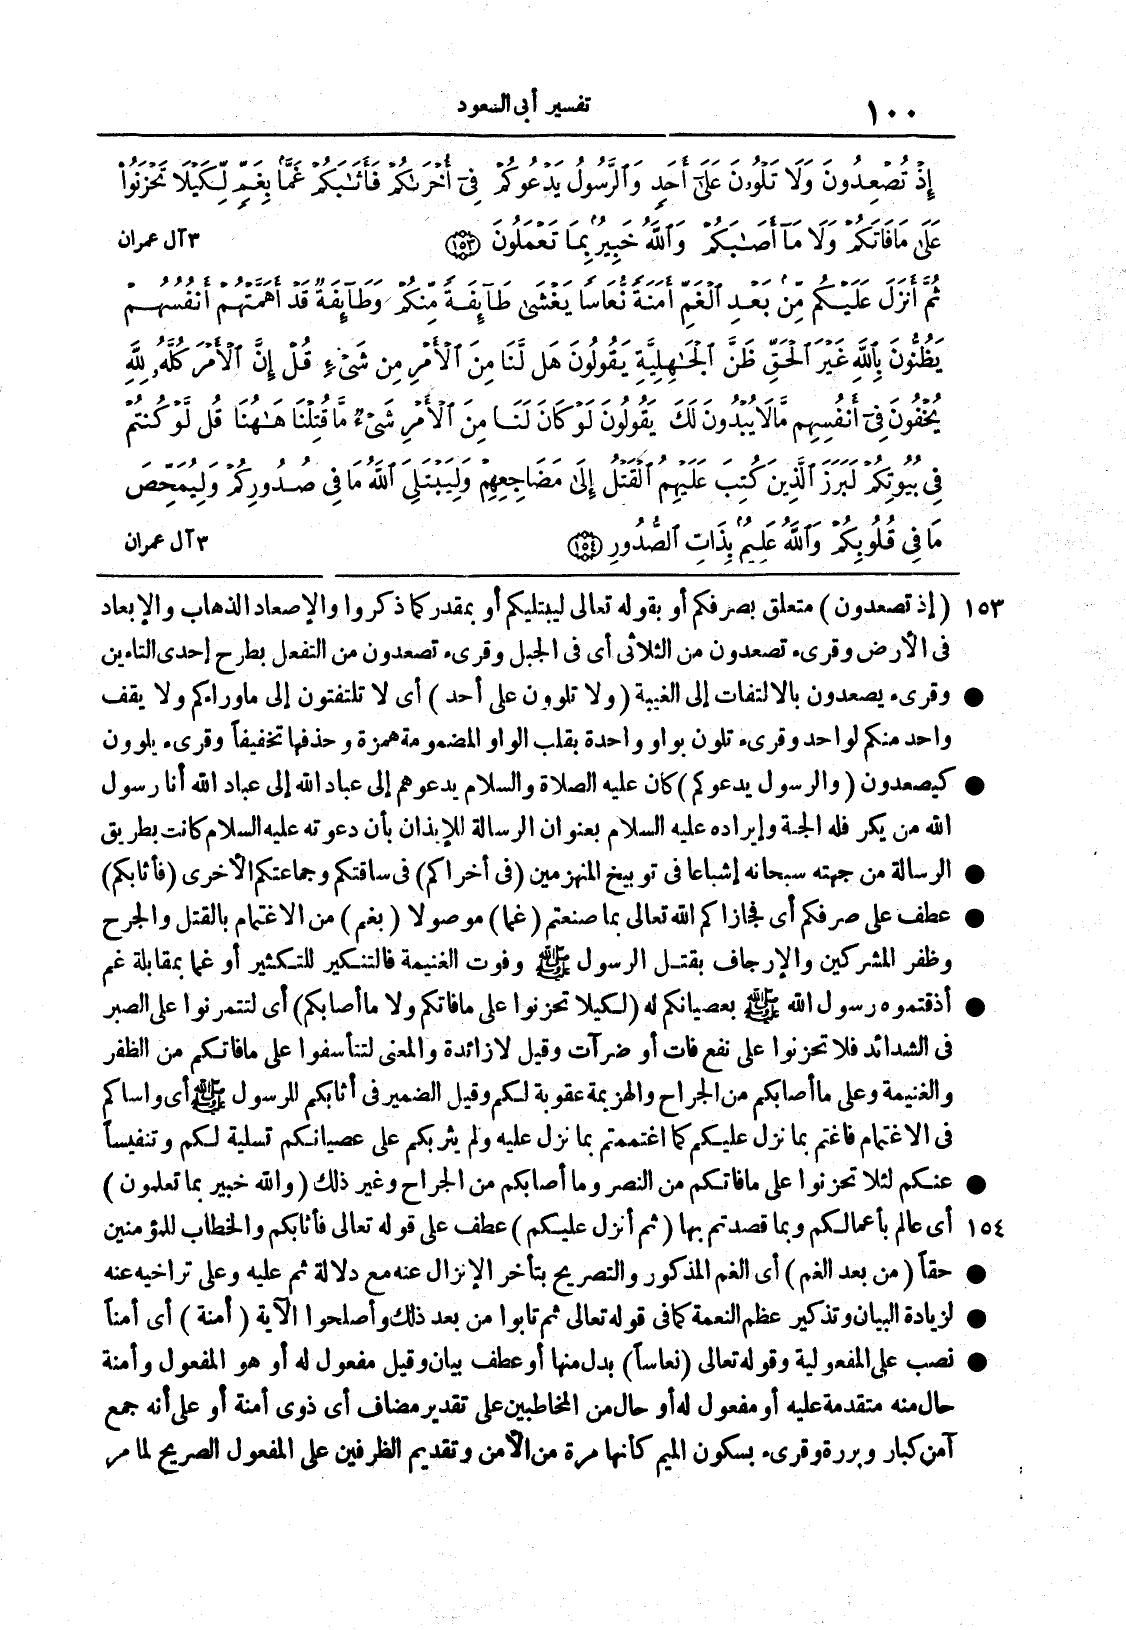 ١٠٠ تفسير أبى السعود
إِذْ تُصْعِدُونَ وَلَا تَلْوُۥنَ عَلَىٰٓ أَحَدٍ وَٱلرَّسُولُ يَدْعُوكُمْ فِىٓ أُخْرَىٰكُمْ فَأَثَـٰبَكُمْ غَمًّۢا بِغَمٍّ لِّكَيْلَا تَحْزَنُوا۟
عَلَىٰ مَا فَاتَكُمْ وَلَا مَآ أَصَـٰبَكُمْ وَٱللَّهُ خَبِيرٌۢ بِمَا تَعْمَلُونَ ﴿١٥٣﴾ ٣ آل عمران
ثُمَّ أَنزَلَ عَلَيْكُم مِّنۢ بَعْدِ ٱلْغَمِّ أَمَنَةً نُّعَاسًا يَغْشَىٰ طَآئِفَةً مِّنكُمْ وَطَآئِفَةٌ قَدْ أَهَمَّتْهُمْ أَنفُسُهُمْ
يَظُنُّونَ بِٱللَّهِ غَيْرَ ٱلْحَقِّ ظَنَّ ٱلْجَـٰهِلِيَّةِ يَقُولُونَ هَل لَّنَا مِنَ ٱلْأَمْرِ مِن شَىْءٍ قُلْ إِنَّ ٱلْأَمْرَ كُلَّهُۥ لِلَّهِ
يُخْفُونَ فِىٓ أَنفُسِهِم مَّا لَا يُبْدُونَ لَكَ يَقُولُونَ لَوْ كَانَ لَنَا مِنَ ٱلْأَمْرِ شَىْءٌ مَّا قُتِلْنَا هَـٰهُنَا قُل لَّوْ كُنتُمْ
فِى بُيُوتِكُمْ لَبَرَزَ ٱلَّذِينَ كُتِبَ عَلَيْهِمُ ٱلْقَتْلُ إِلَىٰ مَضَاجِعِهِمْ وَلِيَبْتَلِىَ ٱللَّهُ مَا فِى صُدُورِكُمْ وَلِيُمَحِّصَ
مَا فِى قُلُوبِكُمْ وَٱللَّهُ عَلِيمٌۢ بِذَاتِ ٱلصُّدُورِ ﴿١٥٤﴾ ٣ آل عمران
١٥٣ (إذ تصعدون) متعلق بصرفكم أو بقوله تعالى ليبتليكم أو بمقدر كما ذكروا والإصعاد الذهاب والإبعاد
فى الأرض وقرىء تصعدون من الثلاثى أى فى الجبل وقرىء تصعدون من التفعل بطرح إحدى التاءين
● وقرىء يصعدون بالالتفات إلى الغيبة (ولا تلوون على أحد) أى لا تلتفتون إلى ماوراءكم ولا يقف
واحد منكم لواحد وقرىء تلون بواو واحدة بقلب الواو المضمومة همزة وحذفها تخفيفاً وقرىء يلوون
● كيصعدون (والرسول يدعوكم) كان عليه الصلاة والسلام يدعوهم إلى عباد الله إلى عباد الله أنا رسول
الله من يكر فله الجنة وإيراده عليه السلام بعنوان الرسالة للإيذان بأن دعوته عليه السلام كانت بطريق
● الرسالة من جهته سبحانه إشباعا فى توبيخ المنهزمين (فى أخراكم) فى ساقتكم وجماعتكم الأخرى (فأثابكم)
● عطف على صرفكم أى فجازاكم الله تعالى بما صنعتم (غما) موصولا (بغم) من الاغتمام بالقتل والجرح
وظفر المشركين والإرجاف بقتل الرسول ﷺ وفوت الغنيمة فالتنكير للتكثير أو غما بمقابلة غم
● أذقتموه رسول الله ﷺ بعصيانكم له (لكيلا تحزنوا على مافاتكم ولا ما أصابكم) أى لتتمرنوا على الصبر
فى الشدائد فلا تحزنوا على نفع فات أو ضر آت وقيل لا زائدة والمعنى لتتأسفوا على مافاتكم من الظفر
والغنيمة وعلى ما أصابكم من الجراح والهزيمة عقوبة لكم وقيل الضمير فى أثابكم للرسول ﷺ أى واساكم
فى الاغتمام فاغتم بما نزل عليكم كما اغتممتم بما نزل عليه ولم يثربكم على عصيانكم تسلية لكم وتنفيساً
● عنكم لئلا تحزنوا على مافاتكم من النصر وما أصابكم من الجراح وغير ذلك (والله خبير بما تعلمون)
١٥٤ أى عالم بأعمالكم وبما قصدتم بها (ثم أنزل عليكم) عطف على قوله تعالى فأثابكم والخطاب للمؤمنين
● حقاً (من بعد الغم) أى الغم المذكور والتصريح بتأخر الإنزال عنه مع دلالة ثم عليه وعلى تراخيه عنه
● لزيادة البيان وتذكير عظم النعمة كما فى قوله تعالى ثم تابوا من بعد ذلك وأصلحوا الآية (أمنة) أى أمناً
● نصب على المفعولية وقوله تعالى (نعاساً) بدل منها أو عطف بيان وقيل مفعول له أو هو المفعول وأمنة
حال منه متقدمة عليه أو مفعول له أو حال من المخاطبين على تقدير مضاف أى ذوى أمنة أو على أنه جمع
آمن كبار وبررة وقرىء بسكون الميم كأنها مرة من الأمن وتقديم الظرفين على المفعول الصريح لما مر